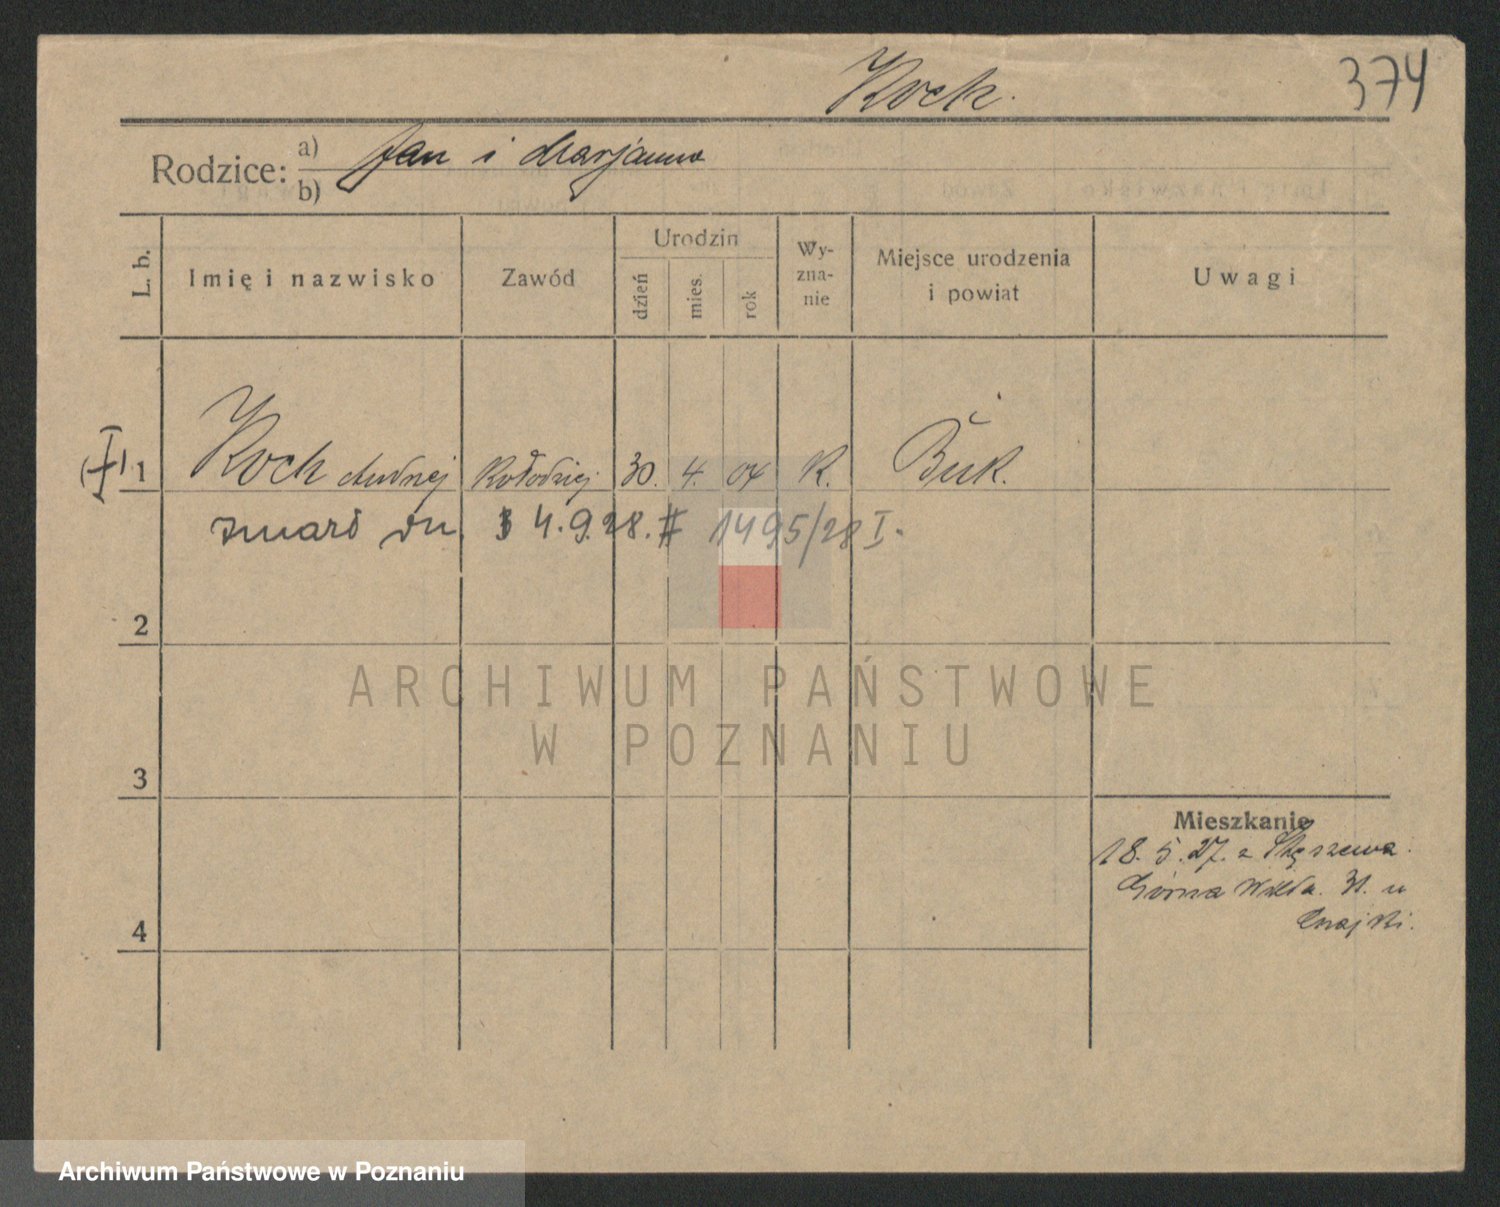 Kock.
374
Rodzice: a) Jan i Marjanna
b)
L. b.
Imię i nazwisko
Zawód
Urodzin
dzień
mies.
rok
Wy-
zna-
nie
Miejsce urodzenia
i powiat
Uwagi
(+) 1 Koch Andrzej Kołodziej 30. 4. 04 K. Buk.
zmarł dn. 4.9.28. # 1495/28 I.
2
ARCHIWUM PAŃSTWOWE
W POZNANIU
3
Mieszkanie
18. 5. 27. z Stęszewa.
Górna Wilda. 31. u
4
Archiwum Państwowe w Poznaniu